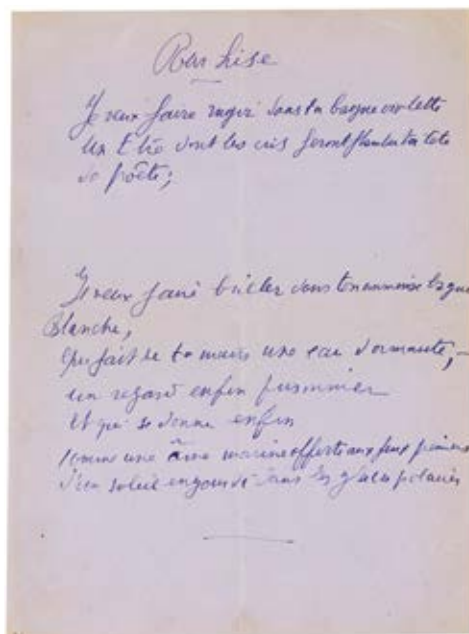 Pour Lise
Je veux faire rugir dans ta bague violette
Un Etre dont les cris feront flamber ta tete
de poète;
Je veux faire briller dans ton immense bague
blanche,
Qui fait de ta main une eau dormante, -
un regard enfin prisonnier
Et qui se donne enfin
comme une âme marine offerte aux feux
d'un soleil engourdi dans les glaces polaires